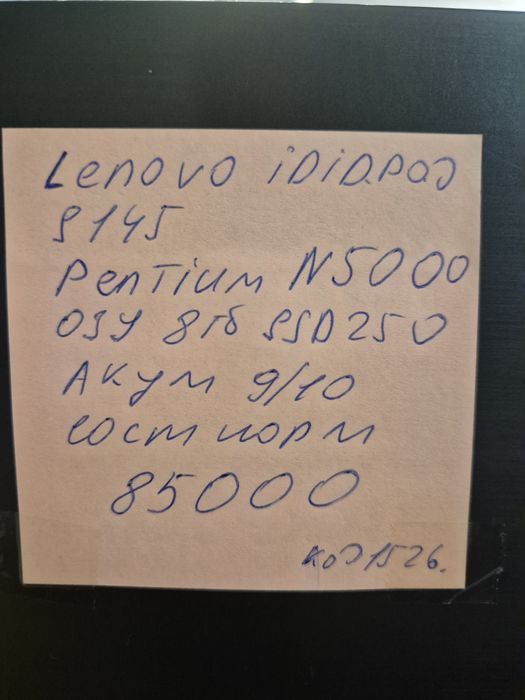 Lenovo iDiDPaD
S145
Pentium N5000
ОЗУ 8гб SSD250
Акум 9/10
сост норм
85000
код 1526.